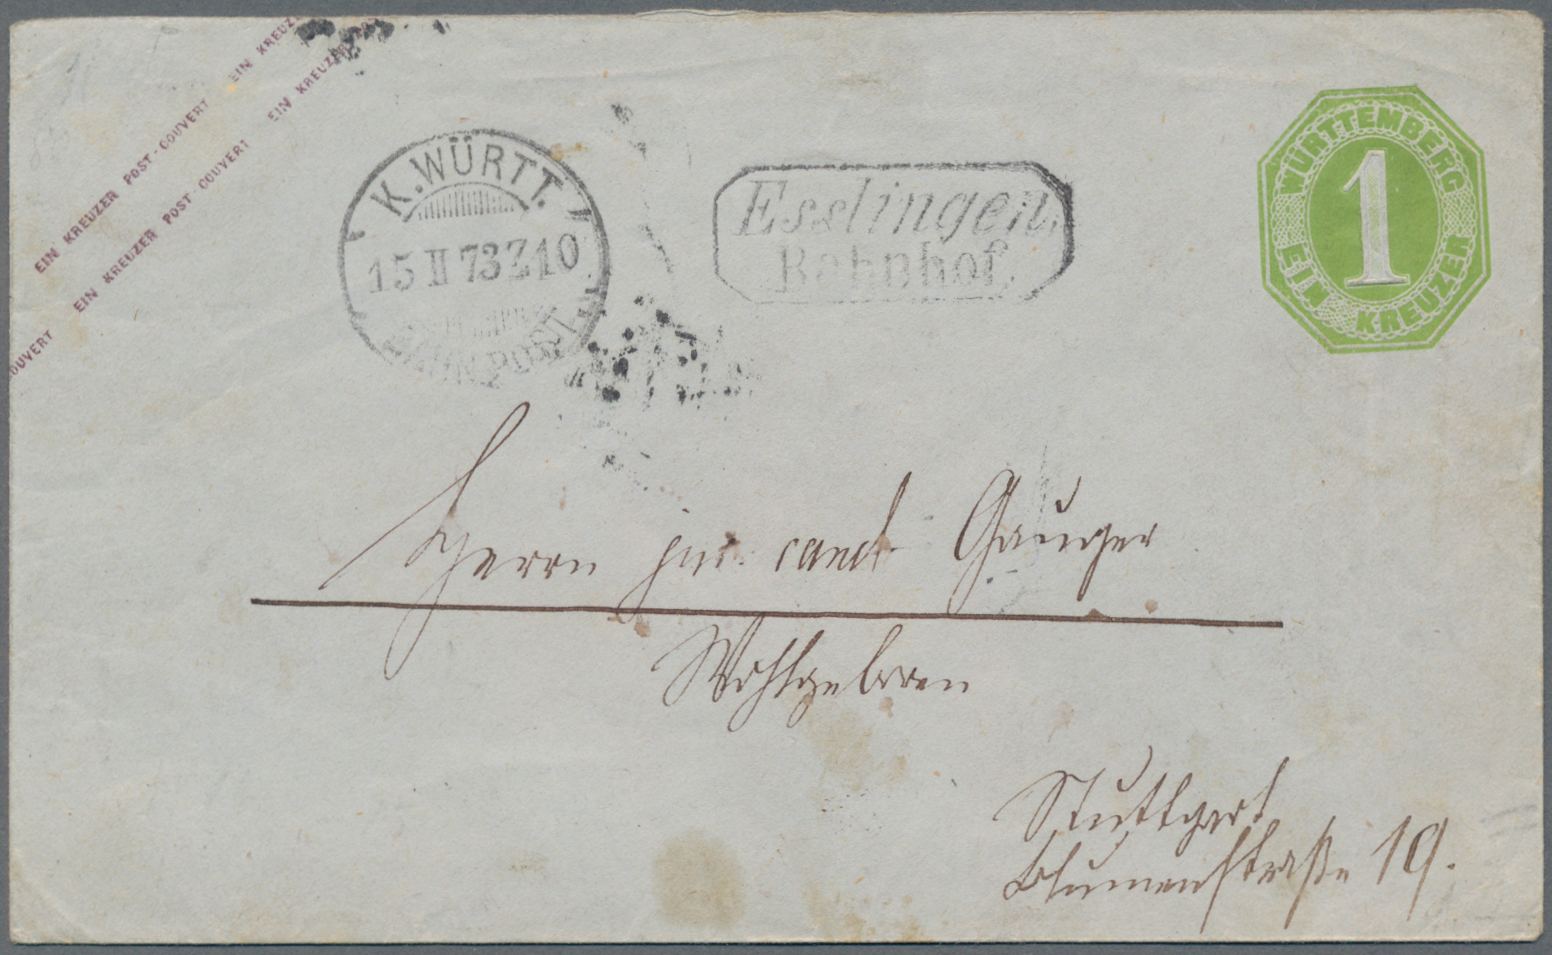 EIN KREUZER POST-COUVERT EIN KREUZ
OUVERT EIN KREUZER POST-COUVERT EIN KREUZER
K. WÜRTT.
15 II 73 Z 10
BAHNPOST
Esslingen.
Bahnhof.
WÜRTTEMBERG
1
EIN KREUZER
Herrn jur. cand. Gauger
Wohlgeboren
Stuttgart
Blumenstraße 19.